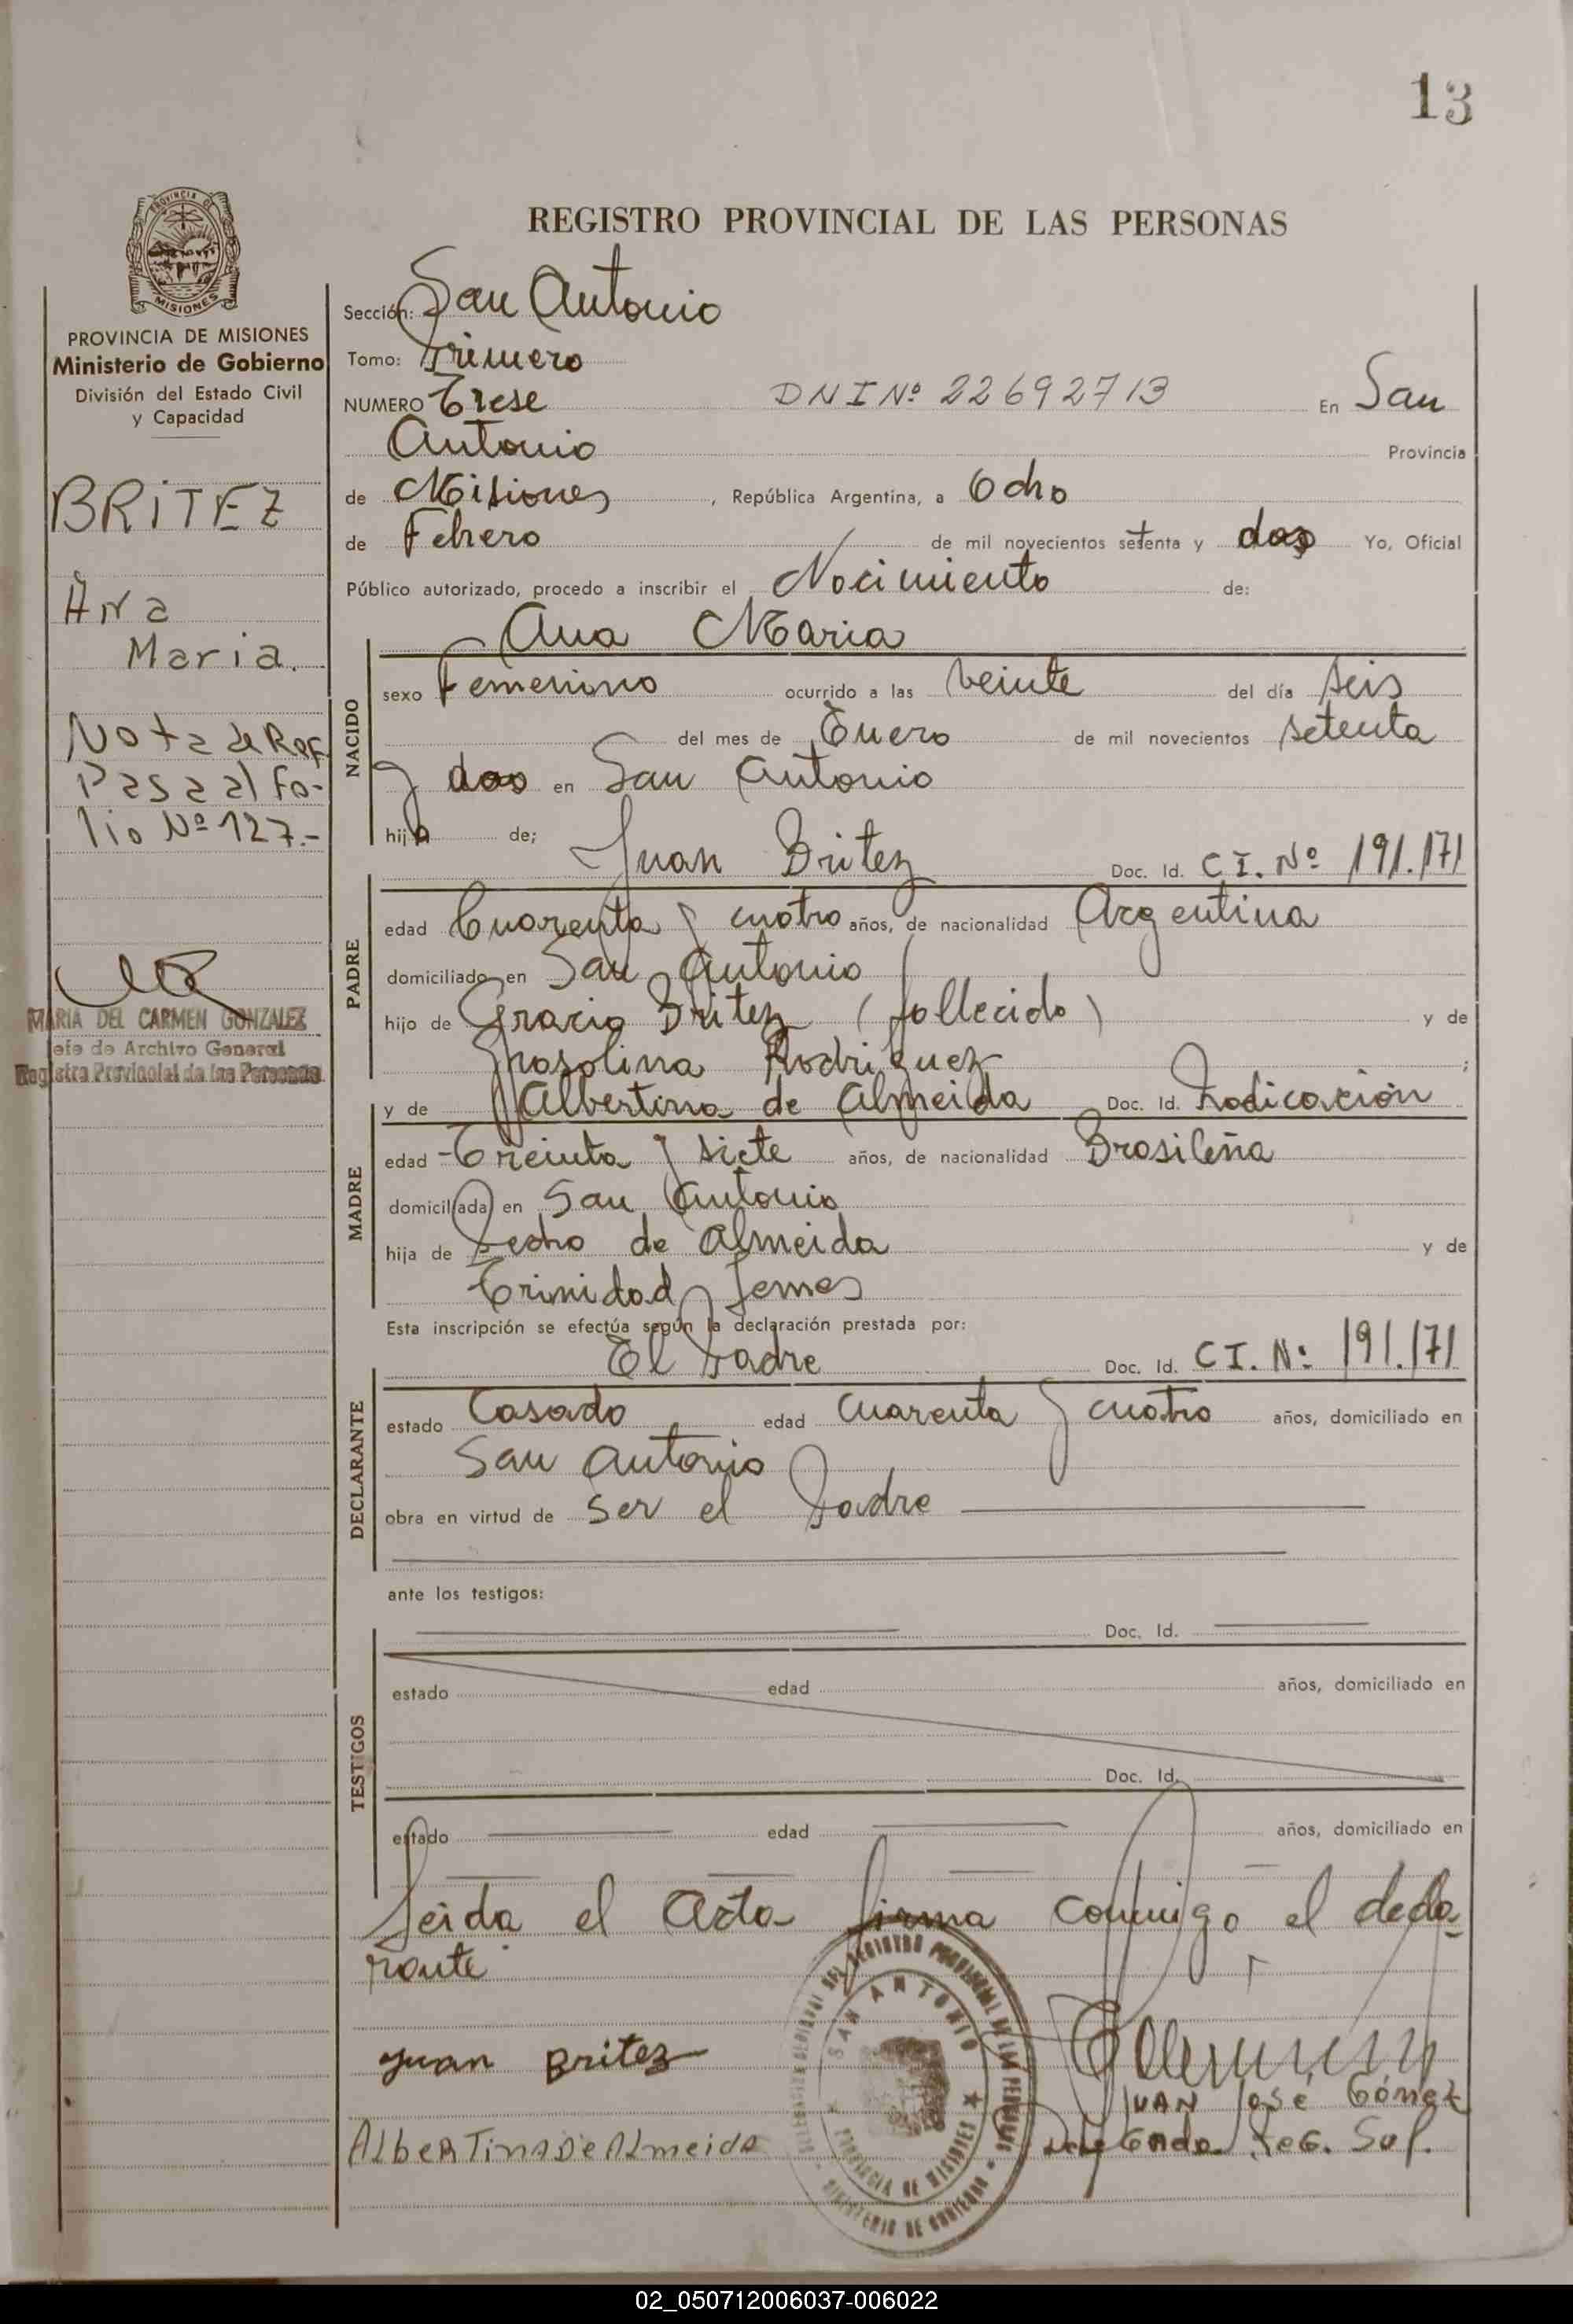 13
REGISTRO PROVINCIAL DE LAS PERSONAS
PROVINCIA DE
MISIONES
PROVINCIA DE MISIONES
Ministerio de Gobierno
División del Estado Civil
y Capacidad
BRITEZ
Ana
Maria.
Nota de Ref
Pasa al fo-
lio Nº 127.-
MARIA DEL CARMEN GONZALEZ
Jefe de Archivo General
Registro Provincial de las Personas
Sección: San Antonio
Tomo: Primero
NUMERO Trese DNI Nº 22692713 En San
Antonio Provincia
de Misiones, República Argentina, a Ocho
de Febrero de mil novecientos setenta y dos Yo, Oficial
Público autorizado, procedo a inscribir el Nacimiento de:
Ana Maria
NACIDO
sexo Femenino ocurrido a las Veinte del día seis
del mes de Enero de mil novecientos setenta
y dos en San Antonio
hija de;
Juan Britez Doc. Id. C I. Nº 191.171
PADRE
edad Cuarenta y cuatro años, de nacionalidad Argentina
domiciliado en San Antonio
hijo de Britez (fallecido) y de
Rodriguez ;
y de Albertina de Almeida Doc. Id. Radicación
MADRE
edad Treinta y siete años, de nacionalidad Brasileña
domiciliada en San Antonio
hija de Pedro de Almeida y de
Trinidad
Esta inscripción se efectúa según la declaración prestada por:
El Padre Doc. Id. C I. Nº 191.171
DECLARANTE
estado Casado edad Cuarenta y cuatro años, domiciliado en
San Antonio
obra en virtud de Ser el Padre
ante los testigos:
Doc. Id.
TESTIGOS
estado edad años, domiciliado en
Doc. Id.
estado edad años, domiciliado en
Leida el Acta firma conmigo el decla-
rante
Juan Britez
Albertina De Almeida
SAN ANTONIO
PROVINCIA DE MISIONES
MINISTERIO DE GOBIERNO
DEL REGISTRO PROVINCIAL DE LAS PERSONAS
JUAN José Gómez
Delegado Reg. Sup.
02_050712006037-006022